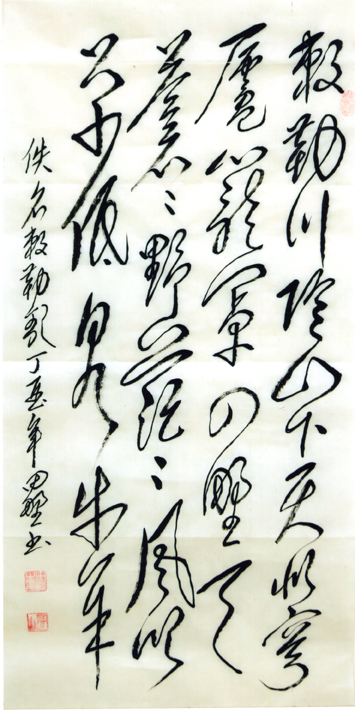 敕勒川陰山下天似穹
廬籠罩四野天
蒼々野茫々風吹
草低見牛羊
佚名敕勒歌丁亥年田野书